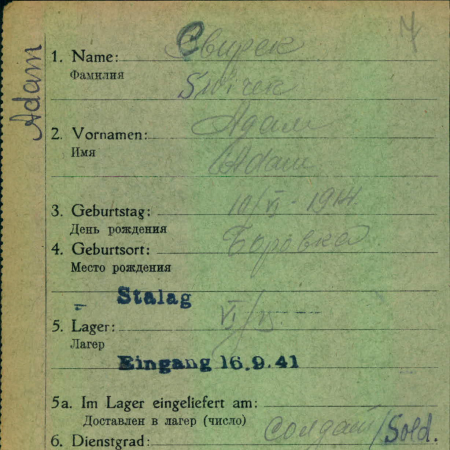 Adam
1. Name: Свирек
Фамилия
Swirek
2. Vornamen: Адам
Имя
Adam
3. Geburtstag: 10/VI - 1914.
День рождения
4. Geburtsort: Боровка
Место рождения
Stalag
5. Lager:
Лагер
Eingang 16.9.41
5a. Im Lager eingeliefert am:
Доставлен в лагер (число)
6. Dienstgrad: солдат/Sold.